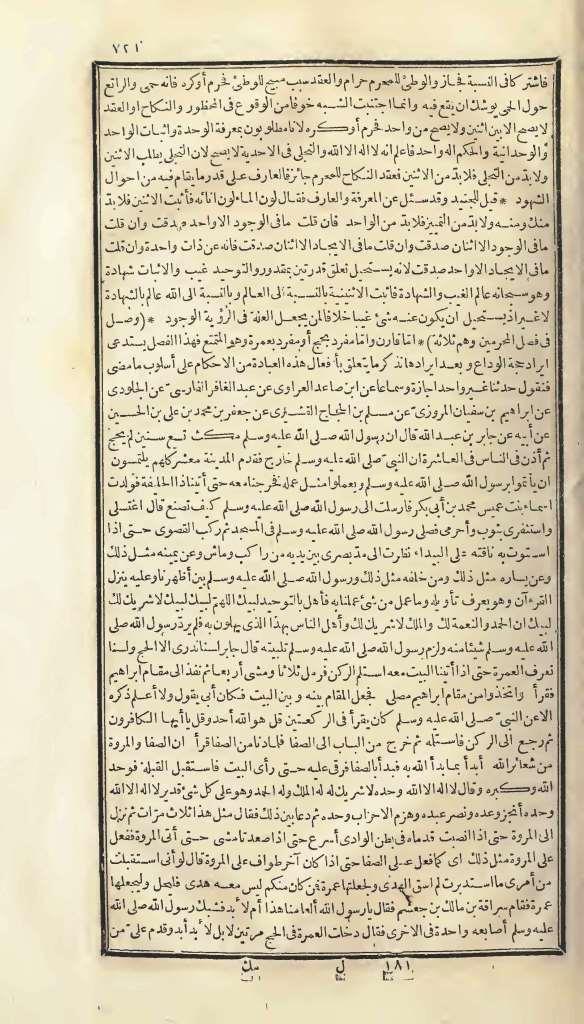 ٧٢١
فاشتركا فى النسبة فجاز والوطئ للمحرم حرام والعقد سبب مبيح للوطئ فحرم أوكره فانه حمى والراتع
حول الحمى يوشك ان يقع فيه وانما اجتنبت الشبه خوفا من الوقوع فى المحظور والنكاح او العقد
لا يصح الا بين اثنين ولا يصح من واحد فحرم أوكره لانا مطلوبون بمعرفة الوحدة واثبات الواحد
والوحدانية والحكم اله واحد فاعلم انه لا اله الا الله والتجلى فى الاحدية لا يصح لان التجلى يطلب الاثنين
ولابد من التجلى فلابد من الاثنين فعقد النكاح للمحرم جائز فالعارف على قدر ما يقام فيه من احوال
الشهود * قيل للجنيد وقد سئل عن المعرفة والعارف فقال لون الماء لون انائه فأثبت الاثنين فلابد
منك ومنه ولابد من التمييز فلابد من الواحد فان قلت ما فى الوجود الا واحد صدقت وان قلت
ما فى الوجود الا اثنان صدقت وان قلت ما فى الايجاد الا اثنان صدقت فانه عن ذات واحدة وان قلت
ما فى الايجاد الا واحد صدقت لانه يستحيل تعلق قدرتين بمقدور والتوحيد غيب والاثبات شهادة
وهو سبحانه عالم الغيب والشهادة فأثبت الاثنينية بالنسبة الى العالم وبالنسبة الى الله عالم بالشهادة
لا غير اذ يستحيل ان يكون عنه شئ غيبا خلافا لمن يجعل العلة فى الرؤية الوجود * (وصل
فى فصل المحرمين وهم ثلاثة) * اما قارن واما مفرد بحج أو مفرد بعمرة وهو المتمتع فهذا الفصل يستدعى
ايراد حجة الوداع وبعد ايرادها نذكر ما يتعلق بأفعال هذه العبادة من الاحكام على أسلوب ما مضى
فنقول حدثنا غير واحد اجازة وسماعا عن ابن صاعد الغراوى عن عبد الغافر الفارسى عن الجلودى
عن ابراهيم بن سفيان المروزى عن مسلم بن الحجاج القشيرى عن جعفر بن محمد بن على بن الحسين
عن أبيه عن جابر بن عبد الله قال ان رسول الله صلى الله عليه وسلم مكث تسع سنين لم يحج
ثم أذن فى الناس فى العاشرة ان النبى صلى الله عليه وسلم خارج فقدم المدينة معشر كلهم يلتمسون
ان يأتموا برسول الله صلى الله عليه وسلم ويعملوا مثل عمله فخرجنا معه حتى أتينا ذا الحليفة فولدت
اسماء بنت عميس محمد بن أبى بكر فارسلت الى رسول الله صلى الله عليه وسلم كيف نصنع قال اغتسلى
واستثفرى بثوب وأحرمى فصلى رسول الله صلى الله عليه وسلم فى المسجد ثم ركب القصوى حتى اذا
استوت به ناقته على البيداء نظرت الى مد بصرى بين يديه من راكب وماش وعن يمينه مثل ذلك
وعن يساره مثل ذلك ومن خلفه مثل ذلك ورسول الله صلى الله عليه وسلم بين أظهرنا وعليه ينزل
القرءآن وهو يعرف تأويله وما عمل من شئ عملنا به فأهل بالتوحيد لبيك اللهم لبيك لبيك لا شريك لك
لبيك ان الحمد والنعمة لك والملك لا شريك لك وأهل الناس بهذا الذى يهلون به فلم يرد رسول الله صلى
الله عليه وسلم شيئا منه ولزم رسول الله صلى الله عليه وسلم تلبيته قال جابر لسنا ندرى الا الحج ولسنا
نعرف العمرة حتى اذا أتينا البيت معه استلم الركن فرمل ثلاثا ومشى أربعا ثم نفذ الى مقام ابراهيم
فقرأ واتخذوا من مقام ابراهيم مصلى فجعل المقام بينه وبين البيت فكان أبى يقول ولا أعلم ذكره
الا عن النبى صلى الله عليه وسلم كان يقرأ فى الركعتين قل هو الله أحد وقل يا أيها الكافرون
ثم رجع الى الركن فاستلمه ثم خرج من الباب الى الصفا فلما دنا من الصفا قرأ ان الصفا والمروة
من شعائر الله أبدأ بما بدأ الله به فبدأ بالصفا فرقى عليه حتى رأى البيت فاستقبل القبلة فوحد
الله وكبره وقال لا اله الا الله وحده لا شريك له له الملك وله الحمد وهو على كل شئ قدير لا اله الا الله
وحده أنجز وعده ونصر عبده وهزم الاحزاب وحده ثم دعا بين ذلك فقال مثل هذا ثلاث مرات ثم نزل
الى المروة حتى اذا انصبت قدماه فى بطن الوادى أسرع حتى اذا صعد تا مشى حتى أتى المروة ففعل
على المروة مثل ذلك اى كما فعل على الصفا حتى اذا كان آخر طواف على المروة قال لو أنى استقبلت
من أمرى ما استدبرت لم اسق الهدى ولجعلتها عمرة فمن كان منكم ليس معه هدى فليحل وليجعلها
عمرة فقام سراقة بن مالك بن جعشم فقال يا رسول الله ألعامنا هذا أم لأبد فشبك رسول الله صلى الله
عليه وسلم أصابعه واحدة فى الاخرى فقال دخلت العمرة فى الحج مرتين لا بل لأبد أبد وقدم على من
١٨١ ل مك